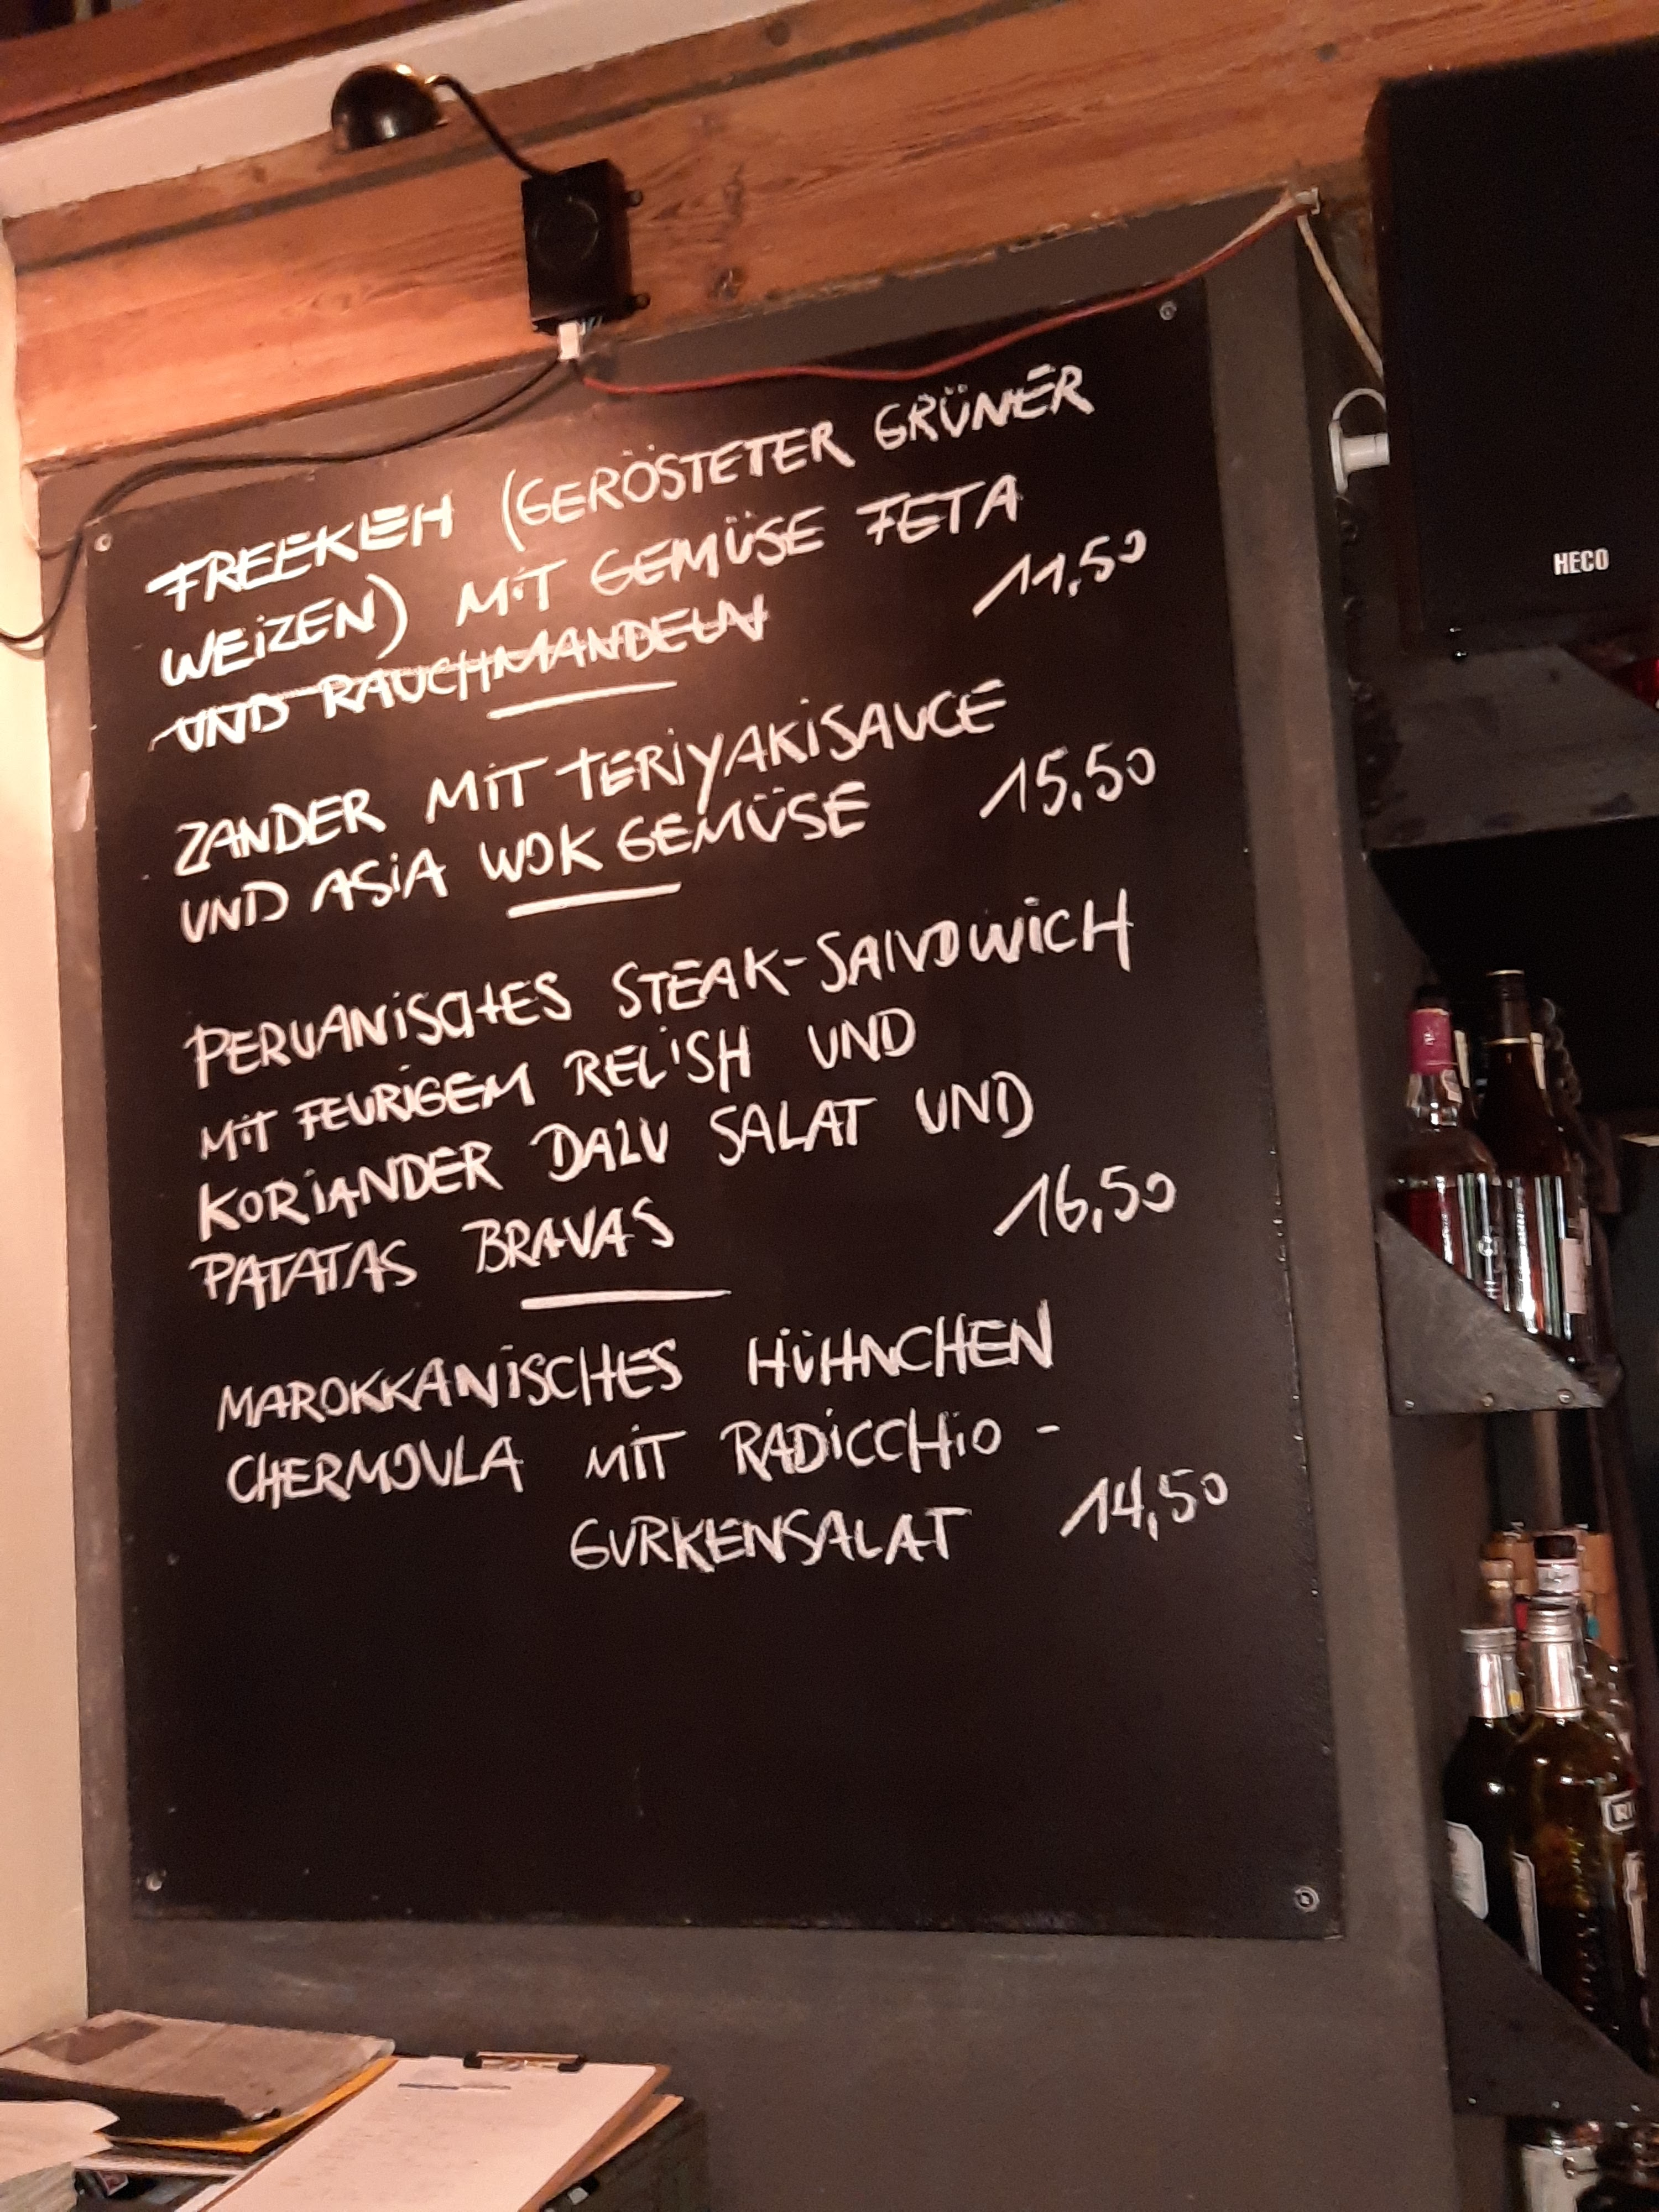 FREEKEH (GERÖSTETER GRÜNER
WEIZEN) MIT GEMÜSE FETA
UND RAUCHMANDELN 11,50
ZANDER MIT TERIYAKISAUCE
UND ASIA WOK GEMÜSE 15,50
PERUANISCHES STEAK-SANDWICH
MIT FEURIGEM RELISH UND
KORIANDER DAZU SALAT UND
PATATAS BRAVAS 16,50
MAROKKANISCHES HÜHNCHEN
CHERMOULA MIT RADICCHIO -
GURKENSALAT 14,50
HECO